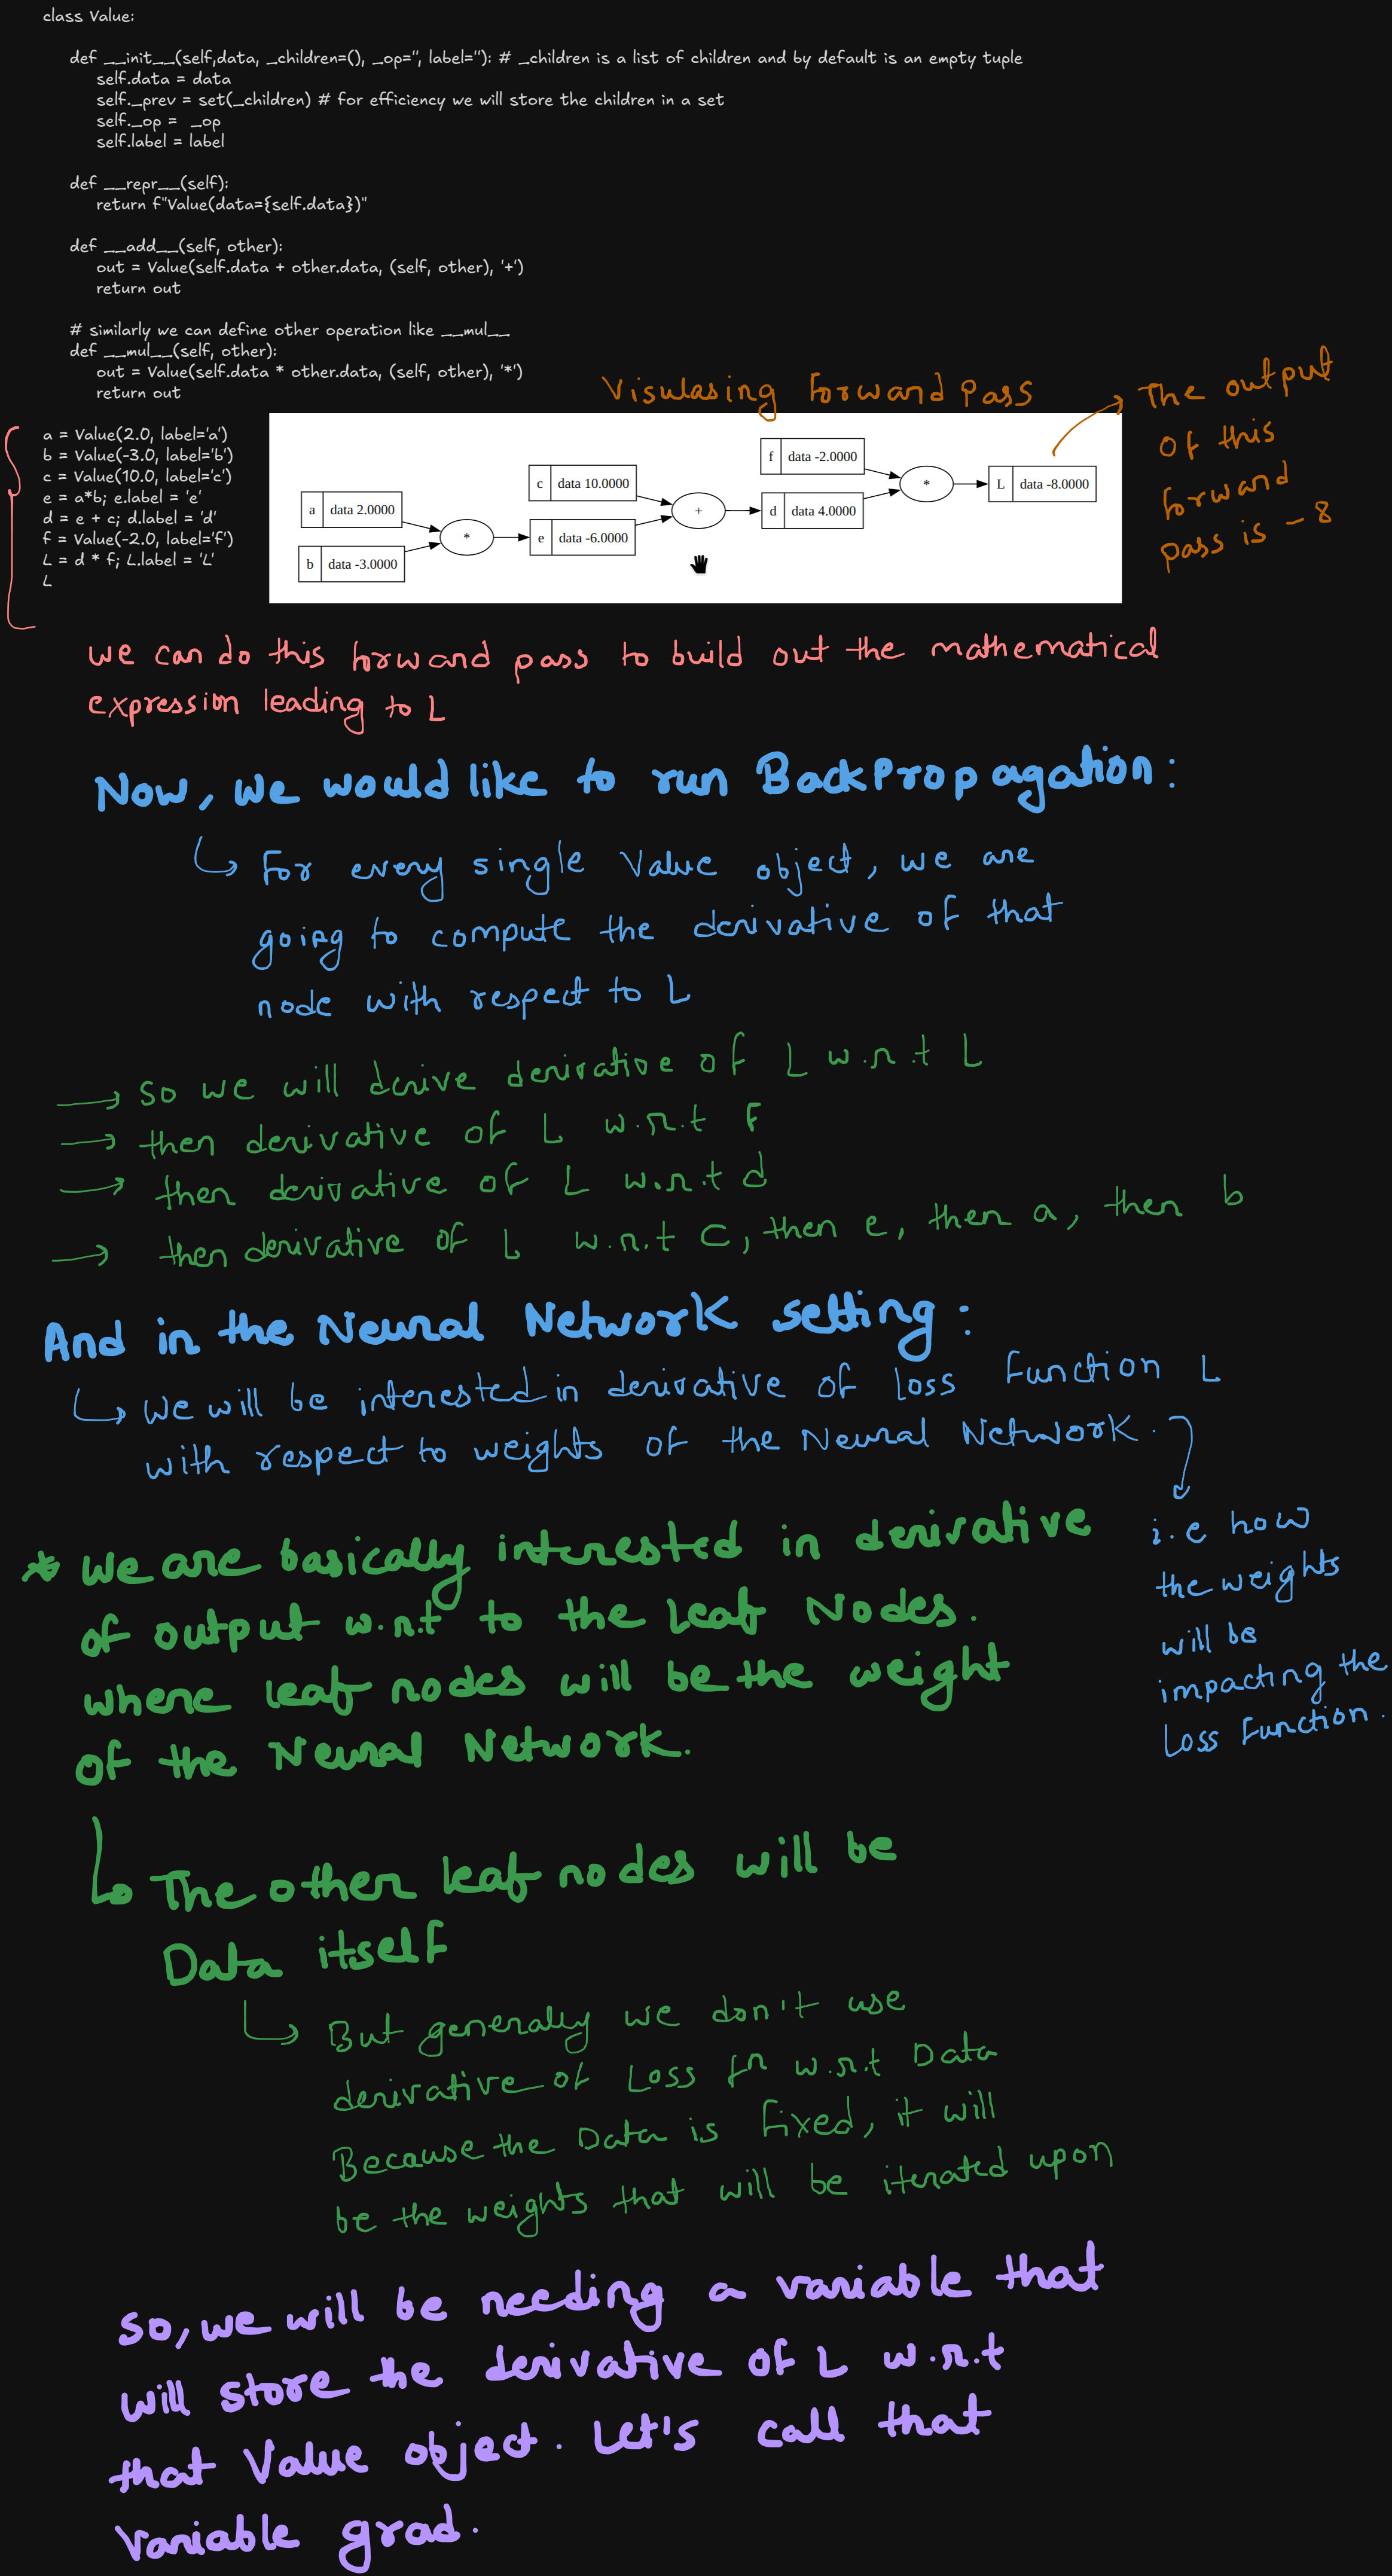 class Value:
def __init__(self,data, _children=(), _op='', label=''): # _children is a list of children and by default is an empty tuple
self.data = data
self._prev = set(_children) # for efficiency we will store the children in a set
self._op = _op
self.label = label
def __repr__(self):
return f"Value(data={self.data})"
def __add__(self, other):
out = Value(self.data + other.data, (self, other), '+')
return out
# similarly we can define other operation like __mul__
def __mul__(self, other):
out = Value(self.data * other.data, (self, other), '*')
return out
a = Value(2.0, label='a')
b = Value(-3.0, label='b')
c = Value(10.0, label='c')
e = a*b; e.label = 'e'
d = e + c; d.label = 'd'
f = Value(-2.0, label='f')
L = d * f; L.label = 'L'
L
Visulasing forward pass
a data 2.0000
b data -3.0000
*
c data 10.0000
e data -6.0000
+
f data -2.0000
d data 4.0000
*
L data -8.0000
The output
of this
forward
pass is -8
we can do this forward pass to build out the mathematical
expression leading to L
Now, we would like to run BackPropagation:
For every single Value object, we are
going to compute the derivative of that
node with respect to L
so we will derive derivative of L w.r.t L
then derivative of L w.r.t f
then derivative of L w.r.t d
then derivative of L w.r.t c, then e, then a, then b
And in the Neural Network setting:
we will be interested in derivative of loss function L
with respect to weights of the Neural Network.
i.e how
the weights
will be
impacting the
loss function.
* we are basically interested in derivative
of output w.r.t to the leaf Nodes.
where leaf nodes will be the weight
of the Neural Network.
The other leaf nodes will be
Data itself
But generally we don't use
derivative of Loss fn w.r.t Data
Because the Data is fixed, it will
be the weights that will be iterated upon
so, we will be needing a variable that
will store the derivative of L w.r.t
that Value object. Let's call that
variable grad.